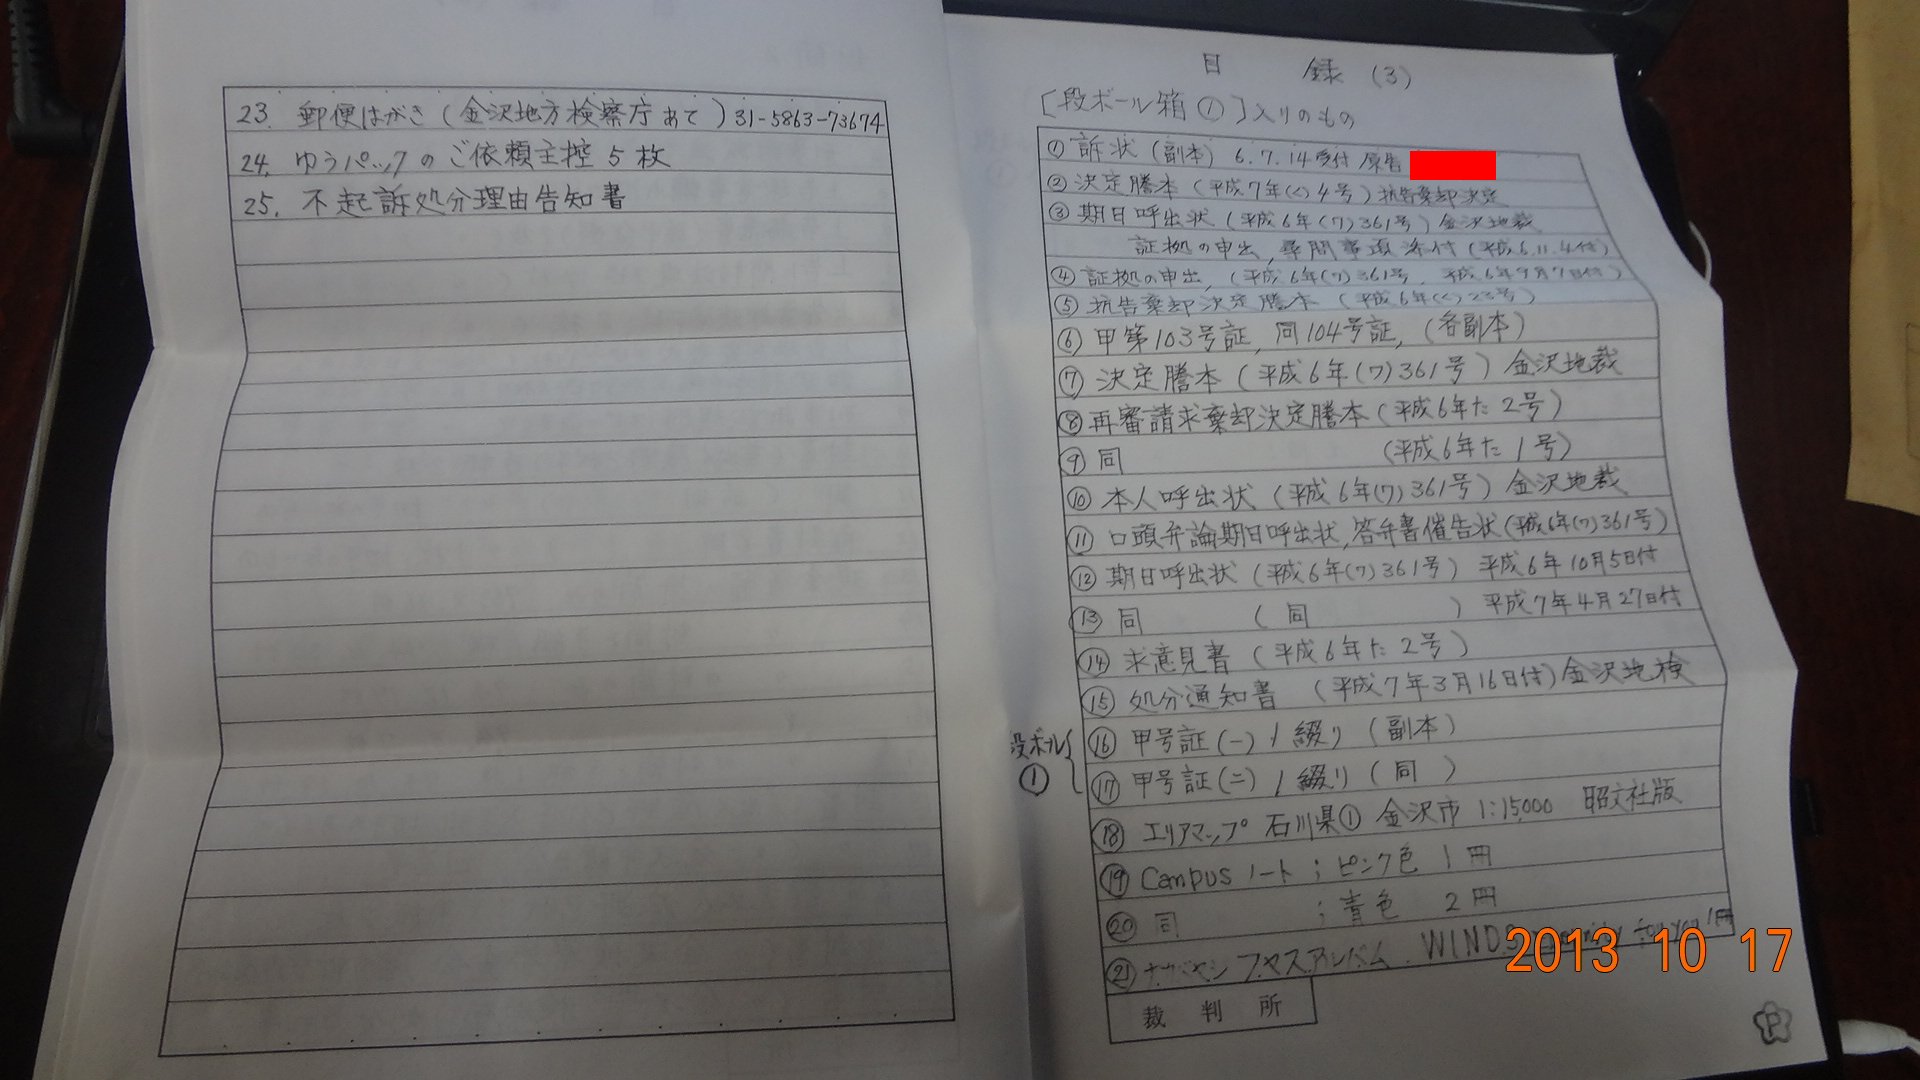 23. 郵便はがき(金沢地方検察庁あて)31-5863-73674
24. ゆうパックのご依頼主控 5枚
25. 不起訴処分理由告知書
目 録 (3)
[段ボール箱①]入りのもの
① 訴状(副本) 6.7.14受付 原告
② 決定謄本(平成7年(く)4号)抗告棄却決定
③ 期日呼出状(平成6年(ワ)361号)金沢地裁
証拠の申出,尋問事項添付(平成6.11.4付)
④ 証拠の申出,(平成6年(ワ)361号,平成6年9月7日付)
⑤ 抗告棄却決定謄本(平成6年(く)23号)
⑥ 甲第103号証,同104号証,(各副本)
⑦ 決定謄本(平成6年(ワ)361号)金沢地裁
⑧ 再審請求棄却決定謄本(平成6年た2号)
⑨ 同 (平成6年た1号)
⑩ 本人呼出状(平成6年(ワ)361号)金沢地裁
⑪ 口頭弁論期日呼出状,答弁書催告状(平成6年(ワ)361号)
⑫ 期日呼出状(平成6年(ワ)361号) 平成6年10月5日付
⑬ 同 (同 ) 平成7年4月27日付
⑭ 求意見書(平成6年た2号)
⑮ 処分通知書 (平成7年3月16日付)金沢地検
段ボール①
⑯ 甲号証(一)1綴り(副本)
⑰ 甲号証(二)1綴り(同 )
⑱ エリアマップ 石川県① 金沢市 1:15,000 昭文社版
⑲ Campusノート;ピンク色 1冊
⑳ 同 ;青色 2冊
㉑ ナカバヤシ フエスアルバム. WINDS for you 1冊
裁判所
P
2013 10 17